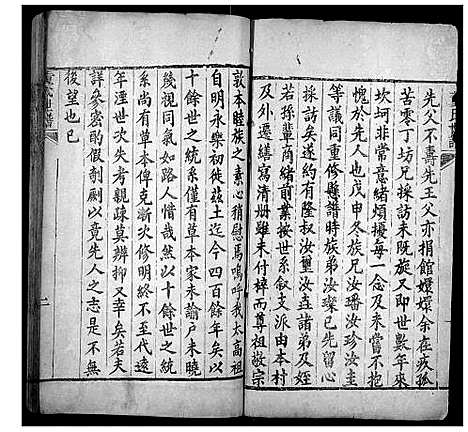 先父不壽先王父亦捐館嬛嬛余在疚孤
苦零丁坊兄採訪未既旋又即世數年來
坎坷非常意緒煩擾每一念及未嘗不抱
愧於先人也戊申冬族兄汝璠汝珍汝圭
等議同重修縣譜時諸弟汝璨已先留心
採訪矣遂約有隆叔汝璽汝圭諸弟及衍
若孫輩商緒前業按世系叙支派由本村
及外遷繕寫清册雖未付梓而尊祖敬宗
敦本睦族之素心稍慰焉嗚呼我太高祖
自明永樂初徙茲土迄今四百餘年矣以
十餘世之統系僅有草本家未諭戶未曉
幾視同氣如路人惜哉然以十餘世之統
系尚有草本俾克漸次修明終不至代遠
年湮世次失考親疎莫辨抑又幸矣若夫
詳參密酌假剞劂以竟先人之志是不無
後望也已
二